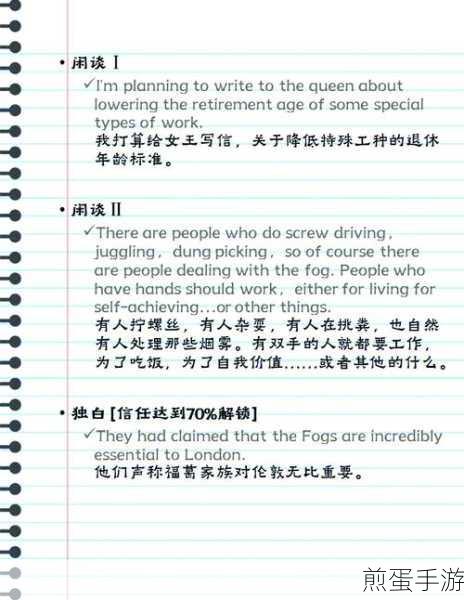 • 闲谈 I
✓I'm planning to write to the queen about
lowering the retirement age of some special
types of work.
我打算给女王写信，关于降低特殊工种的退休
年龄标准。
• 闲谈 II
✓There are people who do screw driving,
juggling, dung picking, so of course there
are people dealing with the fog. People who
have hands should work, either for living for
self-achieving...or other things.
有人拧螺丝，有人杂耍，有人在挑粪，也自然
有人处理那些烟雾。有双手的人就都要工作，
为了吃饭，为了自我价值......或者其他的什么。
• 独白 [信任达到70%解锁]
✓They had claimed that the Fogs are incredibly
essential to London.
他们声称福葛家族对伦敦无比重要。
煎蛋手游